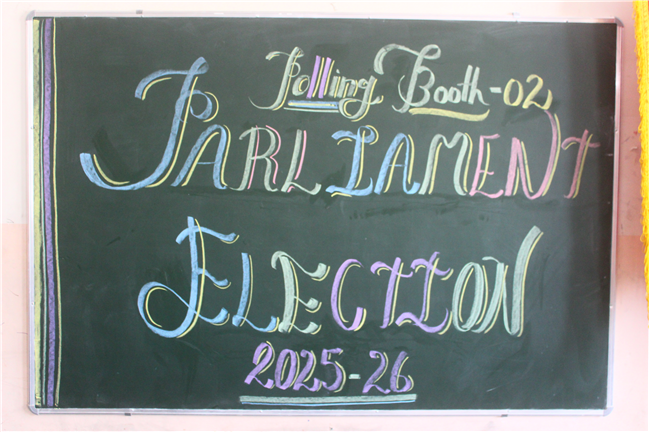 Polling Booth-02
PARLIAMENT
ELECTION
2025-26